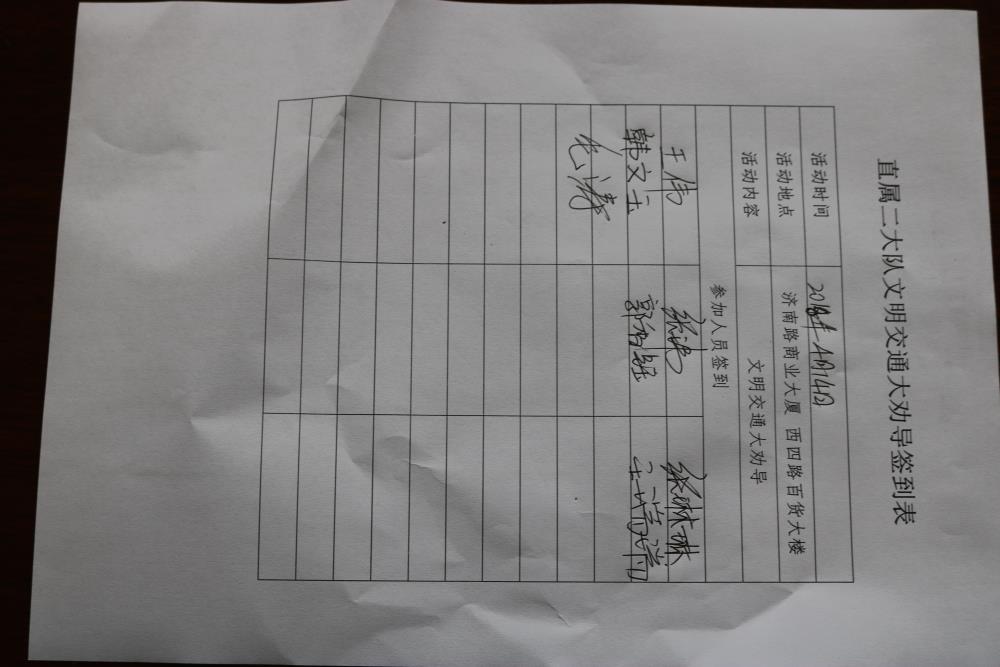 直属二大队文明交通大劝导签到表
活动时间 2018年4月14日
活动地点 济南路商业大厦 西四路百货大楼
活动内容 文明交通大劝导
参加人员签到
王伟 张琳琳
韩文玉